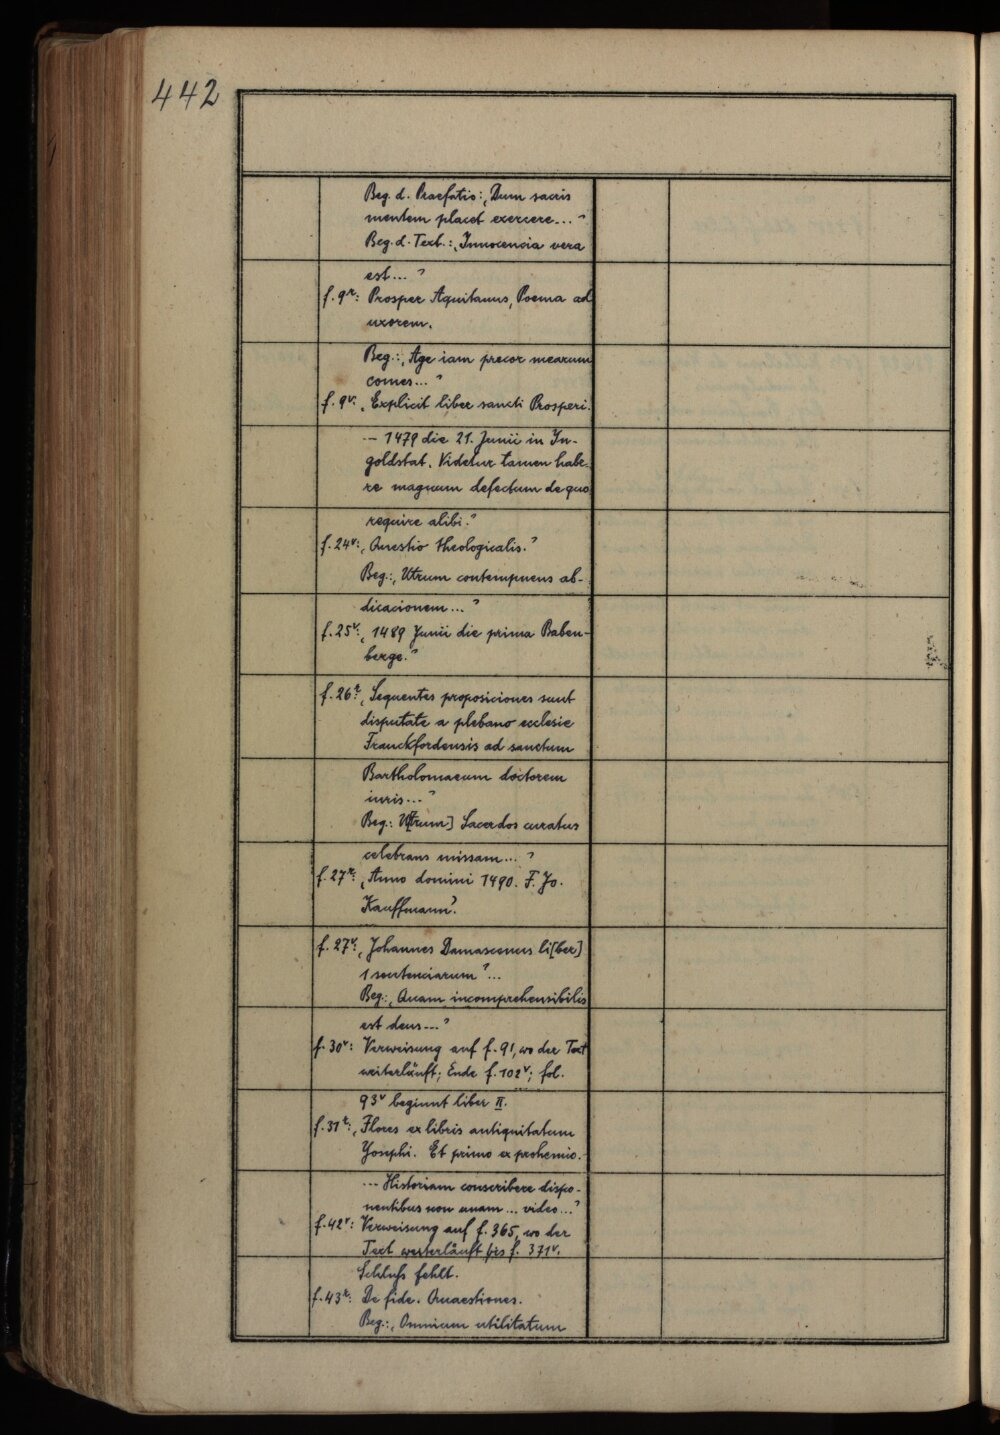 442
Beg. d. Praefatio: „Dum sacris
mentem placet exercere..."
Beg. d. Text.: „Innocencia vera
est..."
f. 9r: Prosper Aquitanus, Poema ad
uxorem.
Beg.: „Age iam precor mearum
comes..."
f. 9v: „Explicit liber sancti Prosperi.
-- 1479 die 21. Junii in In-
goldstat. Videtur tamen habe-
re magnum defectum de quo
require alibi."
f. 24v: „Questio theologicalis."
Beg.: „Utrum contempnens ab-
dicacionem..."
f. 25v: „1489 Junii die prima Baben-
berge."
f. 26r: „Sequentes proposiciones sunt
disputate a plebano ecclesie
Franckfordensis ad sanctum
Bartholomaeum doctorem
iuris..."
Beg.: U[trum] Sacerdos curatus
celebrans missam..."
f. 27r: „Anno domini 1490. F. Jo.
Kauffmann".
f. 27v: „Johannes Damascenus li[ber]
1 sentenciarum"...
Beg.: „Quam incomprehensibilis
est deus..."
f. 30v: Verweisung auf f. 91, wo der Text
weiterläuft; Ende f. 102v; fol.
93v beginnt liber II.
f. 31r: „Flores ex libris antiquitatum
Yosephi. Et primo ex prohemio.
... Historiam conscribere dispo-
nentibus non unam... video..."
f. 42v: Verweisung auf f. 365, wo der
Text weiterläuft bis f. 371v.
Schluß fehlt.
f. 43r: De fide. Quaestiones.
Beg.: „Omnium utilitatum